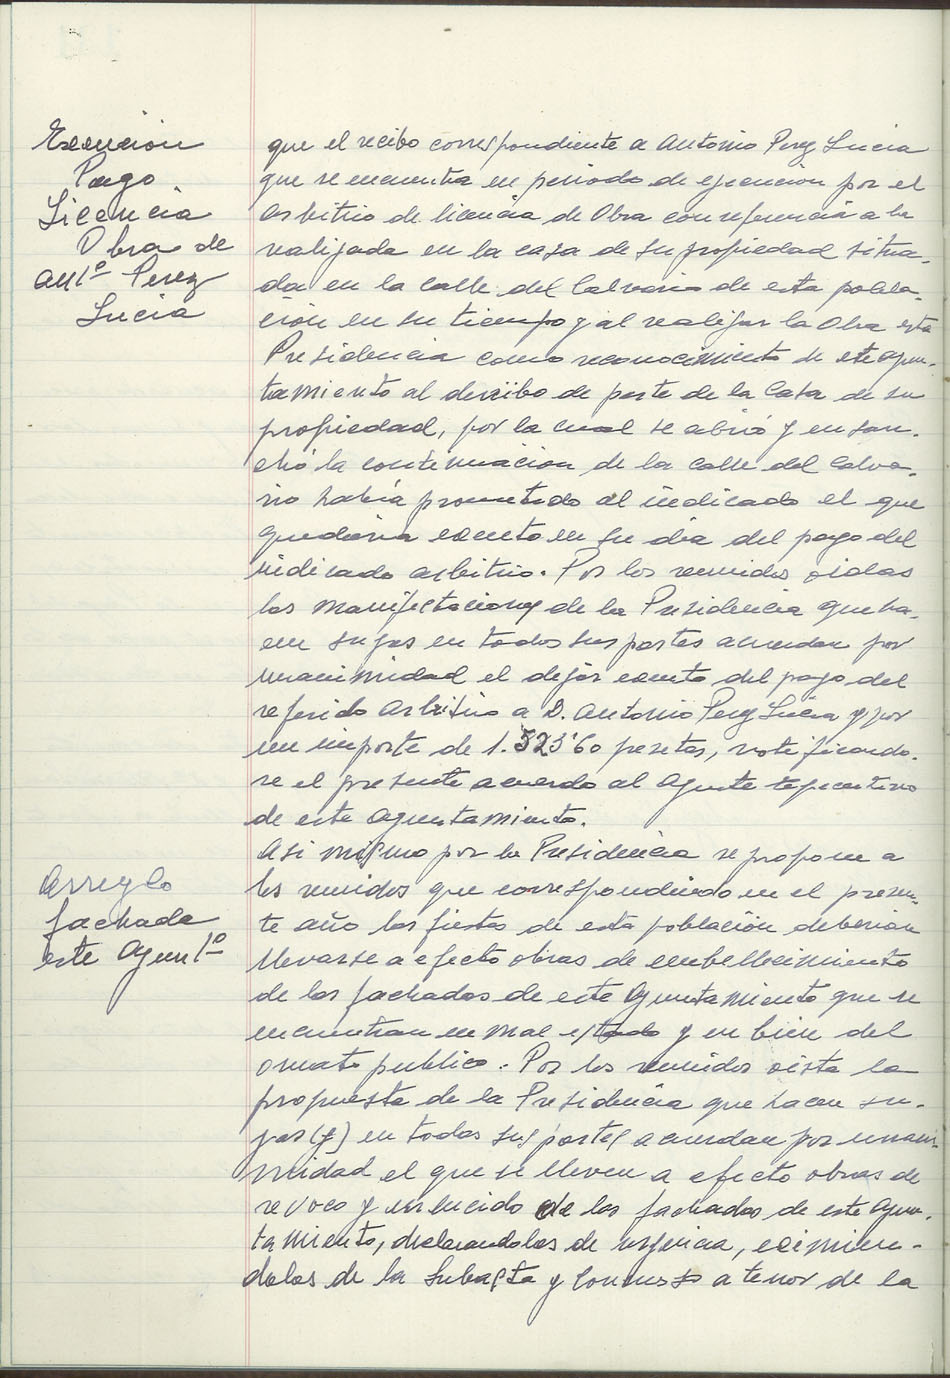 Exención
Pago
Licencia
Obra de
Antº Perez
Lucia
que el recibo correspondiente a Antonio Perez Lucia
que se encuentra en periodo de ejecucion por el
arbitrio de licencia de Obra con referencia a la
realizada en la casa de su propiedad situa-
da en la calle del Calvario de esta pobla-
ción en su tiempo y al realizar la Obra esta
Presidencia como reconocimiento de este Ayun-
tamiento al derribo de parte de la Casa de su
propiedad, por la cual se abrió y ensan-
chó la continuacion de la calle del Calva-
rio había prometido al indicado el que
quedaria exento en su dia del pago del
indicado arbitrio. Por los reunidos oidas
las manifestaciones de la Presidencia que ha-
cen suyas en todas sus partes acuerdan por
unanimidad el dejar exento del pago del
referido arbitrio a D. Antonio Perez Lucia y por
un importe de 1.323'60 pesetas, notificando-
se el presente acuerdo al Agente Ejecutivo
de este Ayuntamiento.
Arreglo
fachada
este Ayuntº
Asi mismo por la Presidencia se propone a
los reunidos que correspondiendo en el presen-
te año las fiestas de esta población deberian
llevarse a efecto obras de embellecimiento
de las fachadas de este Ayuntamiento que se
encuentran en mal estado y en bien del
ornato publico. Por los reunidos vista la
propuesta de la Presidencia que hacen su-
yas (f) en todas sus partes acuerdan por unani-
midad el que se lleven a efecto obras de
revoco y enlucido de las fachadas de este Ayun-
tamiento, declarandolas de urgencia, eximien-
dolas de la Subasta y Concurso a tenor de la